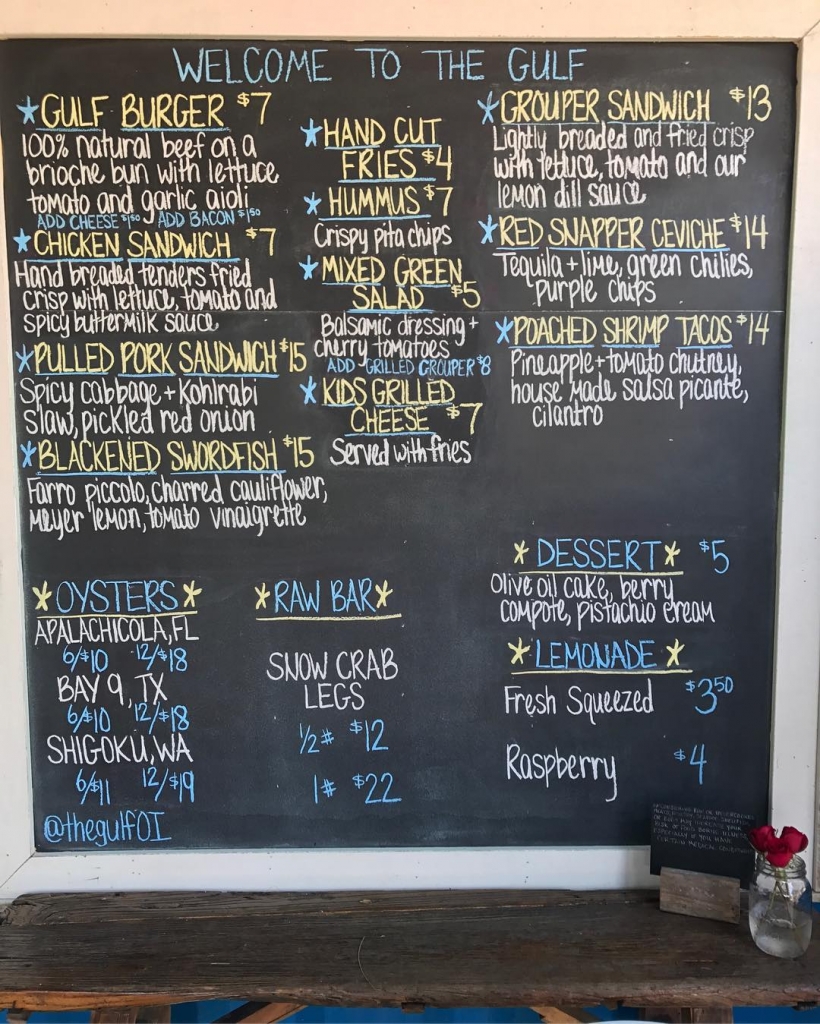 WELCOME TO THE GULF
GULF BURGER $7
100% natural beef on a
brioche bun with lettuce
tomato and garlic aioli
ADD CHEESE $1.50 ADD BACON $1.50
CHICKEN SANDWICH $7
Hand breaded tenders fried
crisp with lettuce, tomato and
spicy buttermilk sauce
PULLED PORK SANDWICH $15
Spicy cabbage + Kohlrabi
slaw, pickled red onion
BLACKENED SWORDFISH $15
Farro piccolo, charred cauliflower,
meyer lemon, tomato vinaigrette
HAND CUT
FRIES $4
HUMMUS $7
Crispy pita chips
MIXED GREEN
SALAD $5
Balsamic dressing +
cherry tomatoes
ADD GRILLED GROUPER $8
KIDS GRILLED
CHEESE $7
Served with fries
GROUPER SANDWICH $13
Lightly breaded and fried crisp
with lettuce, tomato and our
lemon dill sauce
RED SNAPPER CEVICHE $14
Tequila + lime, green chilies,
purple chips
POACHED SHRIMP TACOS $14
Pineapple + tomato chutney,
house made salsa picante,
cilantro
OYSTERS
APALACHICOLA, FL
6/$10 12/$18
BAY 9, TX
6/$10 12/$18
SHIGOKU, WA
6/$11 12/$19
@thegulfOI
RAW BAR
SNOW CRAB
LEGS
1/2# $12
1# $22
DESSERT $5
Olive oil cake, berry
compote, pistachio cream
LEMONADE
Fresh Squeezed $3.50
Raspberry $4